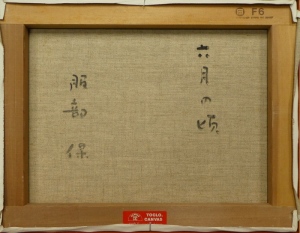 六月の頃
服部 保
F6
TOOLO-
CANVAS